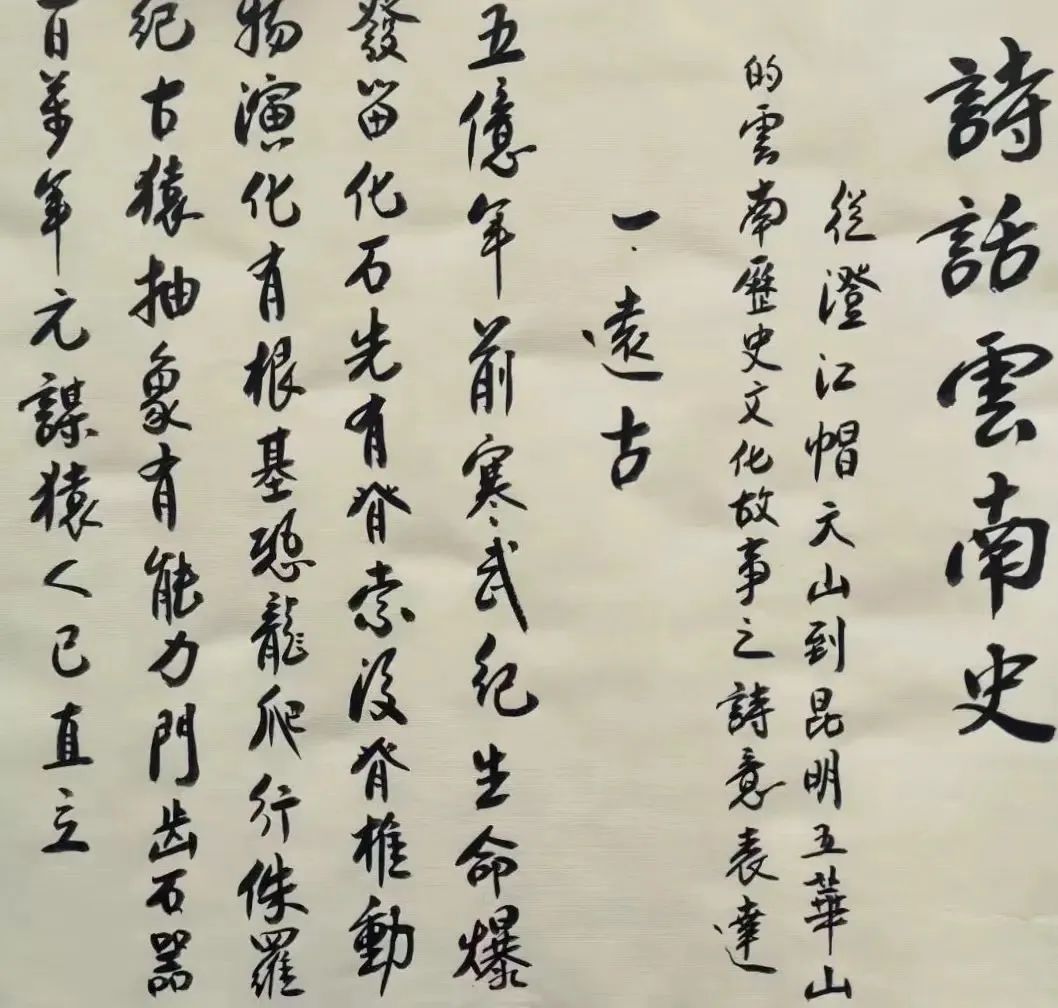 詩話雲南史
從澄江帽天山到昆明五華山
的雲南歷史文化故事之詩意表達
一.遠古
五億年前寒武紀生命爆
發留化石先有脊索後脊椎動
物演化有根基恐龍爬行侏羅
紀古猿抽象有能力門齿石器
百萬年元謀猿人已直立